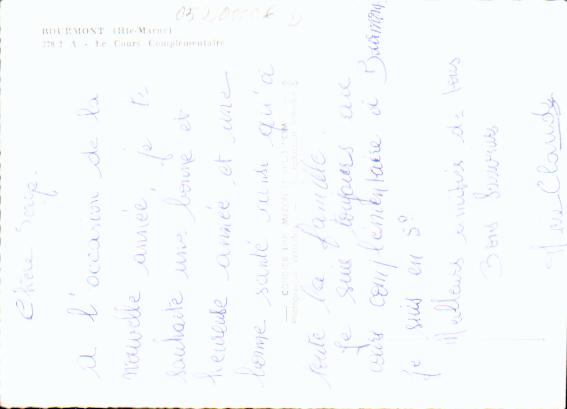 BOURMONT (Hte-Marne)
278.2 A - Le Cours Complémentaire
Chère
à l'occasion de la
nouvelle année, je te
souhaite une bonne et
heureuse année et une
bonne santé ainsi qu'à
toute la famille.
Je suis toujours au
cours complémentaire à Bourmont
je suis en 5e
Meilleurs amitiés de tous
Bons Souvenirs
Claude